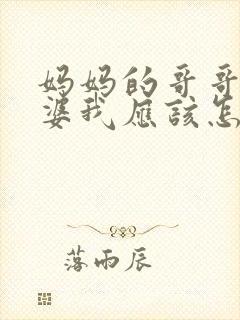 妈妈的哥哥
婆我应该怎
落雨辰